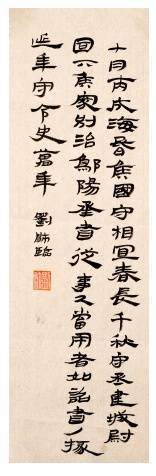 十月丙戌海昏侯國守相宜春長千秋守丞建城尉
回下侯家別治鄡陽丞書從事下當用者如詔書/掾
延年守令史萬年
劉臨